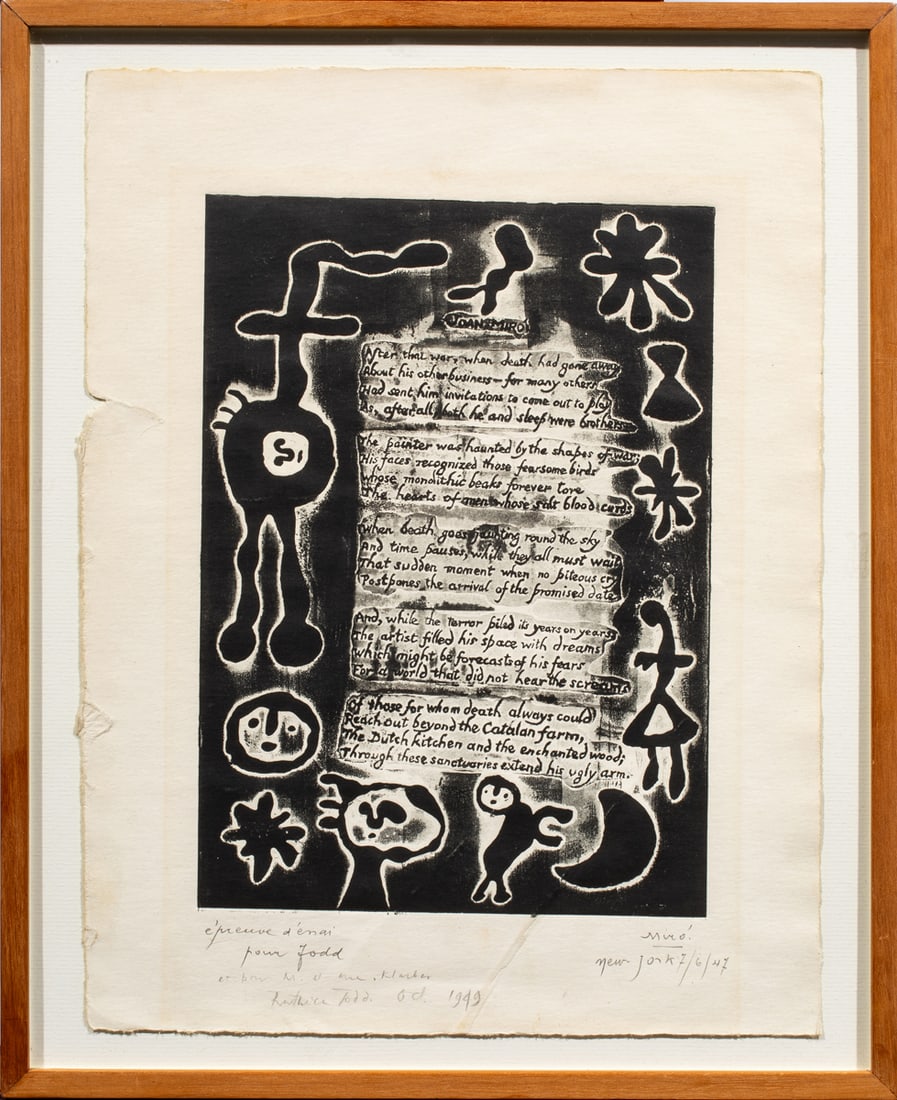 JOAN MIRO
After that war, when death had gone away
About his other business – for many others
Had sent him invitations to come out to play
As, after all, both he and sleep were brothers
The painter was haunted by the shapes of war;
His faces recognized those fearsome birds
whose monolithic beaks forever tore
The hearts of men whose salt blood curds
When death goes jaunting round the sky
And time pauses, while they all must wait
That sudden moment when no piteous cry
Postpones the arrival of the promised date
And, while the terror piled its years on years,
The artist filled his space with dreams
which might be forecasts of his fears
For a world that did not hear the screams
Of those for whom death always could
Reach out beyond the Catalan farm,
The Dutch kitchen and the enchanted wood;
Through these sanctuaries extend his ugly arm.
épreuve d'essai
pour Todd
Miró.
New York 7/6/47
et pour M.
Ruthven Todd. Oct. 1949